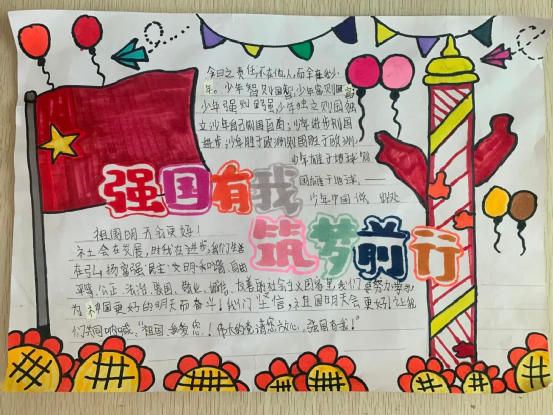 今日之责任不在他人,而全在我少
年。少年智则国智,少年富则国富
少年强则国强,少年独立则国独
立少年自由则国自由;少年进步则国
进步;少年胜于欧洲则国胜于欧洲
少年雄于地球则
国雄于地球。——
少年中国
强国有我
筑梦前行
祖国明天会更好!
社会在发展,时代在进步,我们生活
在弘扬富强、民主、文明、和谐、自由
平等、公正、法治、爱国、敬业、诚信、友善的社会主义国家里,我们要努力学习
为祖国更好的明天而奋斗!我们坚信,祖国明天会更好!让我
们共同呐喊,"祖国,我爱您!伟大的党请您放心,强国有我!"